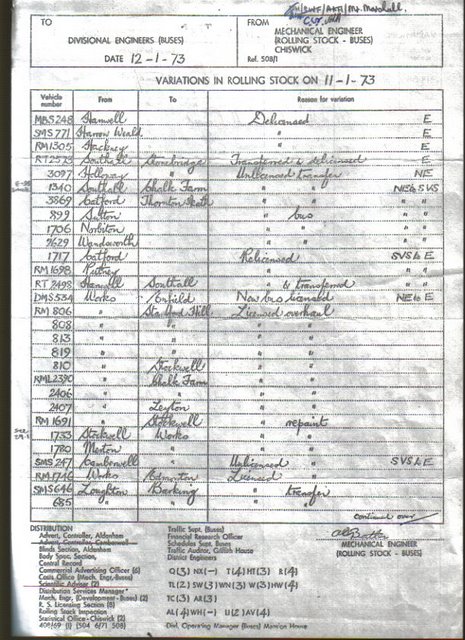 TO
DIVISIONAL ENGINEERS (BUSES)
DATE 12-1-73
FROM
MECHANICAL ENGINEER
(ROLLING STOCK - BUSES)
CHISWICK
Ref. 508/1
Mr. Marshall.
VARIATIONS IN ROLLING STOCK ON 11-1-73
Vehicle number From To Reason for variation
MBS248 Hanwell Delicensed E
SMS771 Harrow Weald " E
RM1305 Hackney " E
RT2573 Southall Stonebridge Transferred & delicensed E
3097 Holloway " Unlicensed transfer NE
1340 Southall Chalk Farm " " NE to SVS
3869 Catford Thornton Heath " " " "
899 Sutton " bus " "
1706 Norbiton " " "
Wandsworth " " "
1717 Catford Relicensed SVS to E
RM1698 Putney " " "
RT2498 Hanwell Southall " & transferred " "
DMS534 Works Enfield New bus licensed NE to E
RM806 " Stamford Hill Licensed overhaul
808 " " " "
813 " " " "
819 " " " "
810 " Stockwell " "
RML2390 " Chalk Farm " "
2406 " " " "
2407 " Leyton " "
RM1691 " Stockwell " repaint
1733 Stockwell Works " "
1780 Merton " " "
SMS247 Camberwell " Unlicensed SVS to E
RM1746 Works Edmonton Licensed "
SMS646 Loughton Barking " transfer
685 " " " "
continued over
DISTRIBUTION
Advert. Controller, Aldenham
Advert. Controller Camberwell
Blinds Section, Aldenham
Body Spec. Section,
Central Record
Commercial Advertising Officer (6)
Costs Office (Mech. Engr.-Buses)
Scientific Adviser (2)
Distribution Services Manager
Mech. Engr. (Development - Buses) (2)
R. S. Licensing Section (8)
Rolling Stock Inspection
Statistical Office - Chiswick (2)
409/69 (1) (504 6/71 508)
Traffic Supt. (Buses)
Financial Research Officer
Schedules Supt. Buses
Traffic Auditor, Griffith House
District Engineers
Q(3) NX(-) T(4) HT(3) R(4)
TL(2) SW(3) WN(3) W(3) HW(4)
TC(3) AR(3)
AL(4) WH(-) U(2) AV(4)
Divl. Operating Manager (Buses) Manson House
MECHANICAL ENGINEER
(ROLLING STOCK - BUSES)